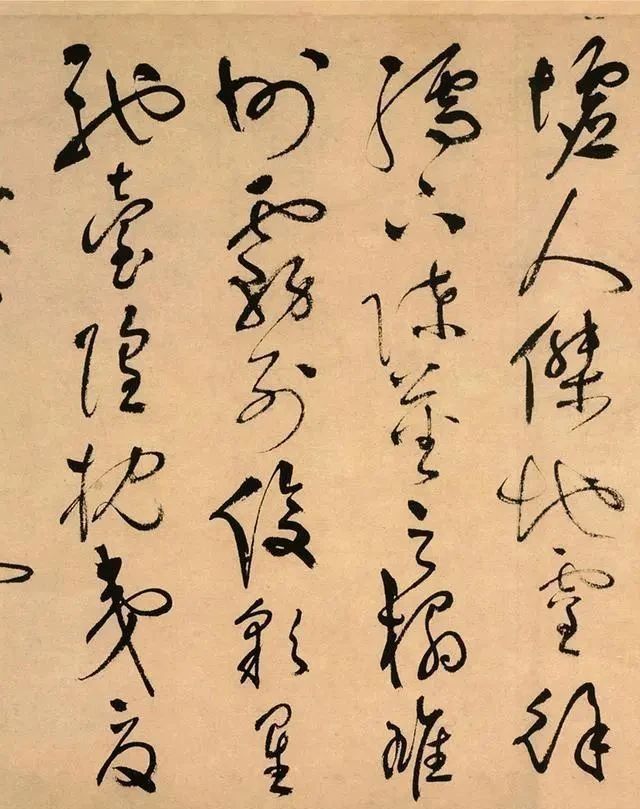 墟人傑地靈徐
孺下陳蕃之榻雄
州霧列俊彩星
馳臺隍枕夷夏